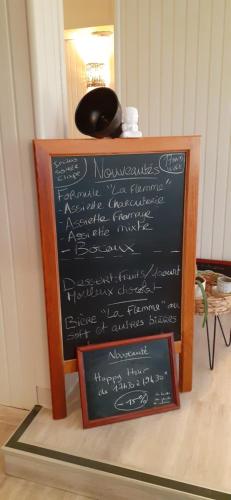 Nouveautés
Formule "La Flemme"
- Assiette Charcuterie
- Assiette Fromage
- Assiette mixte
- Bocaux
Dessert: Fruits/yaourt
Moelleux chocolat
Bière "La Flemme" ou
soft et autres bières
Nouveauté
Happy Hour
de 17h30 à 19h30
-15%